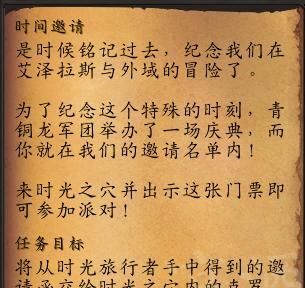 时间邀请
是时候铭记过去，纪念我们在
艾泽拉斯与外域的冒险了。
为了纪念这个特殊的时刻，青
铜龙军团举办了一场庆典，而
你就在我们的邀请名单内！
来时光之穴并出示这张门票即
可参加派对！
任务目标
将从时光旅行者手中得到的邀
请函交给时光之穴内的克罗